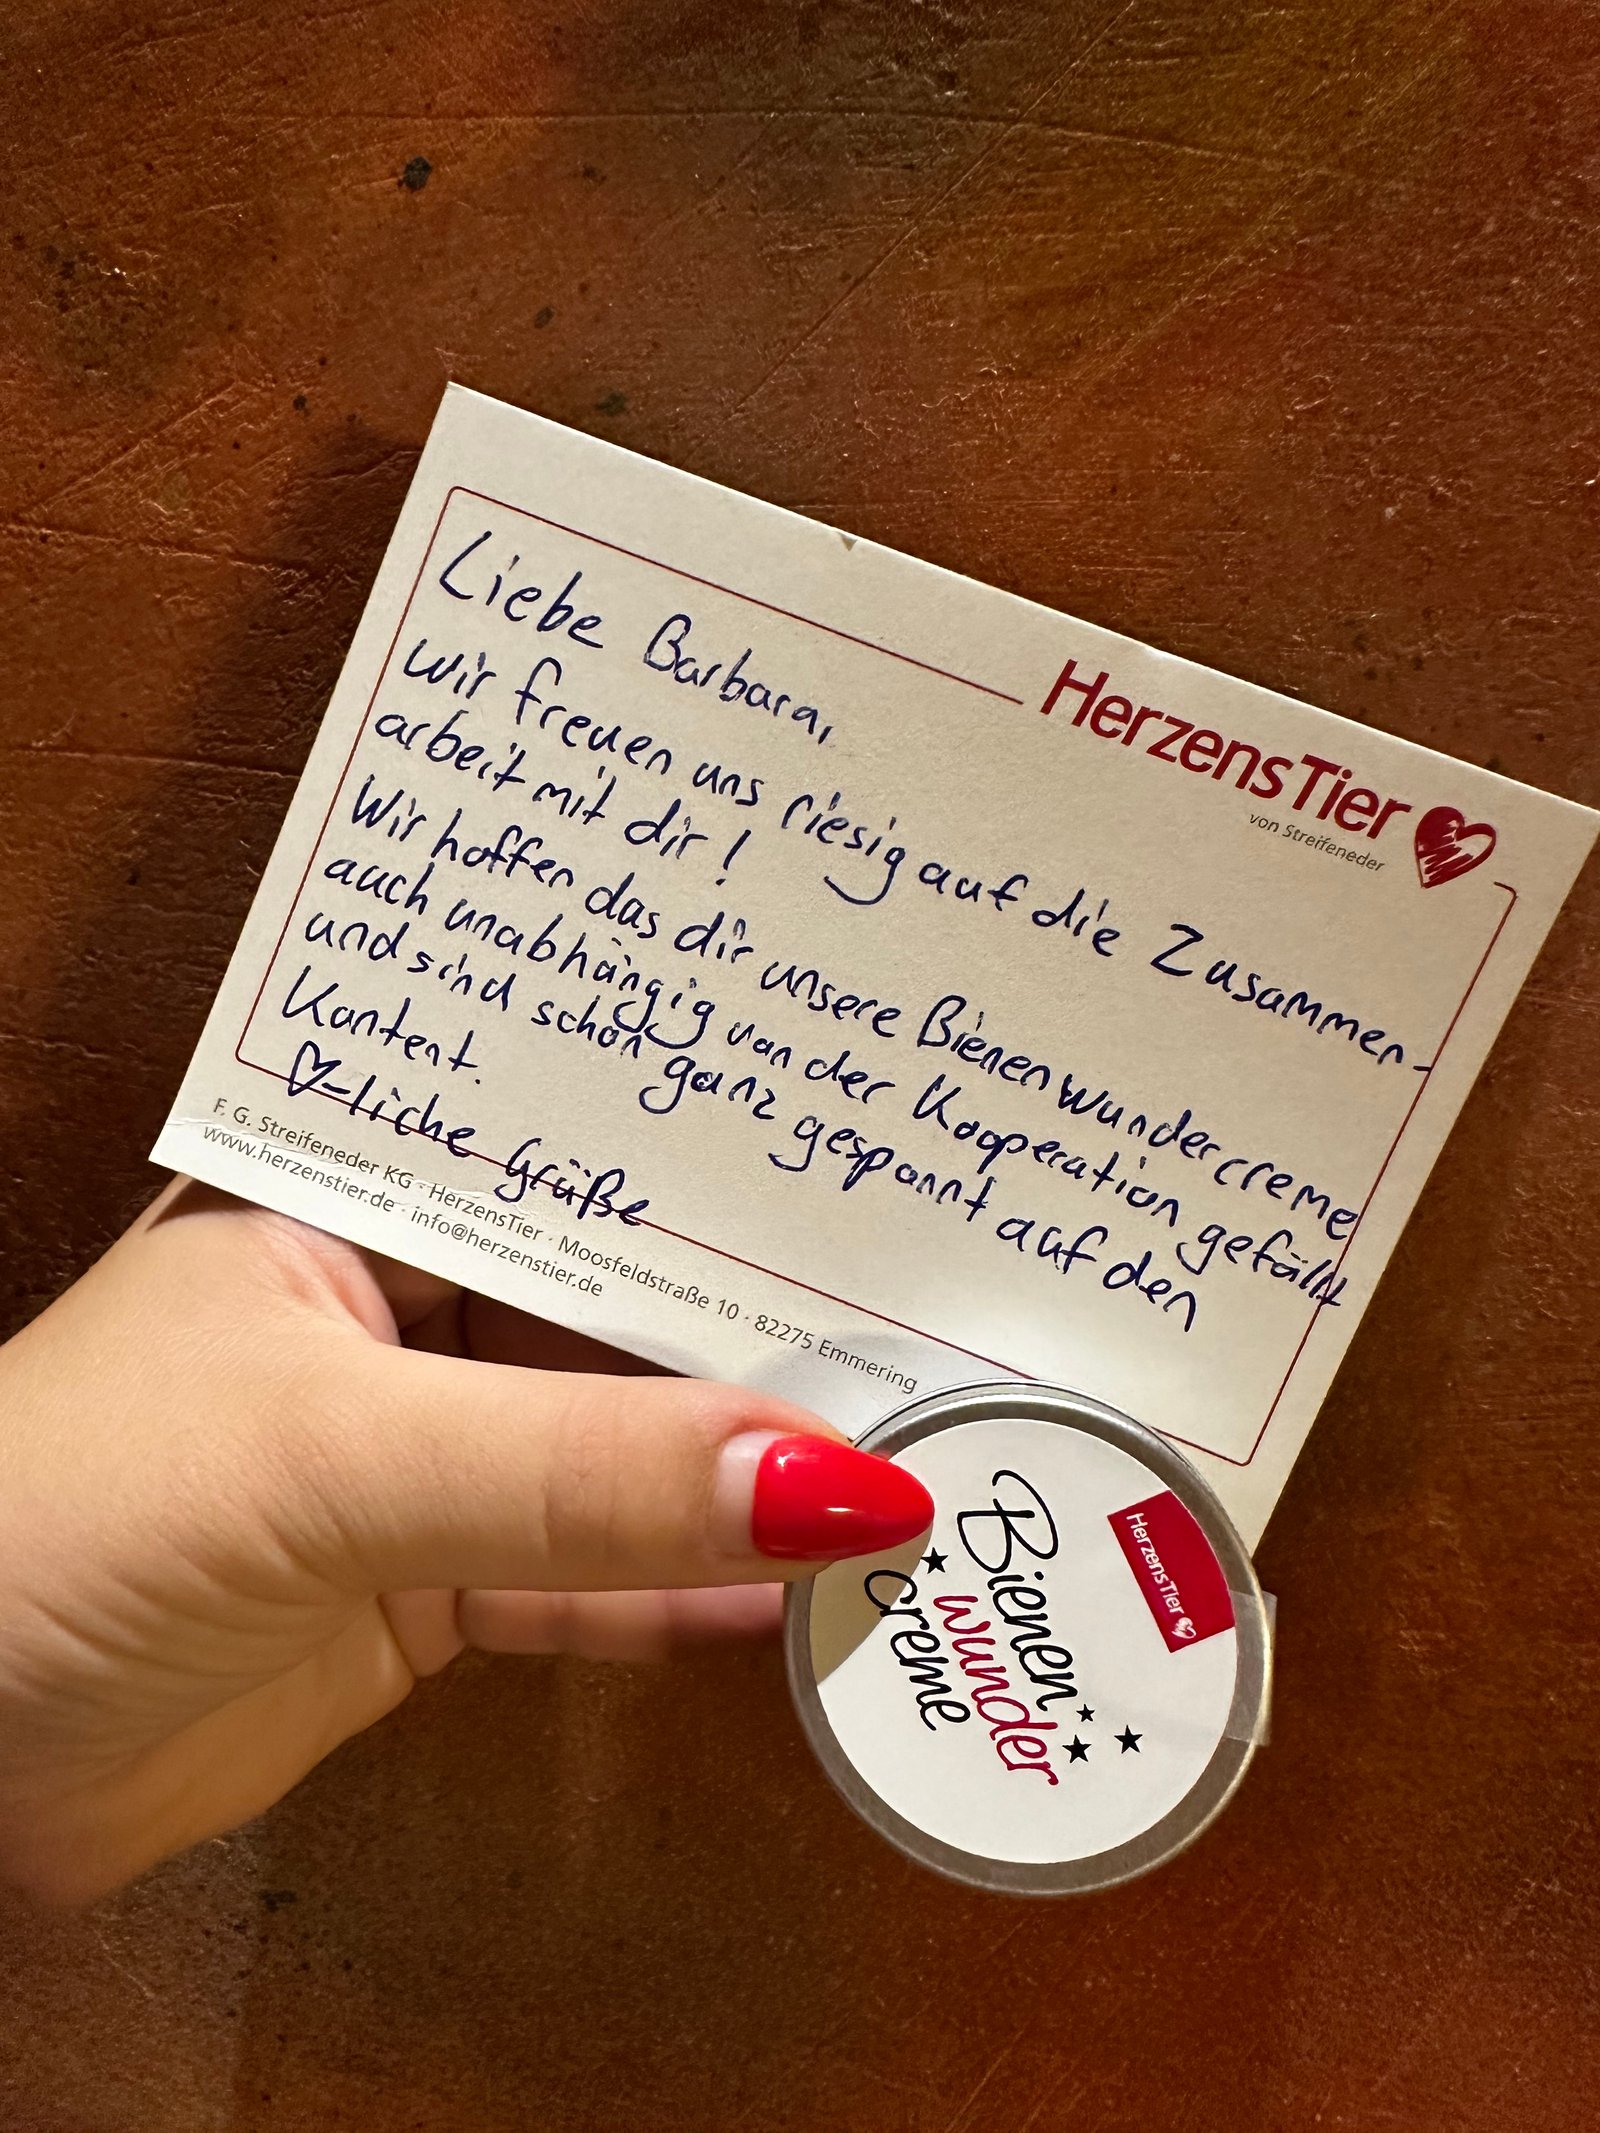 Liebe Barbara,
wir freuen uns riesig auf die Zusammen-
arbeit mit dir!
Wir hoffen das dir unsere Bienenwundercreme
auch unabhängig von der Kooperation gefällt
und sind schon ganz gespannt auf den
Kontent.
♡-liche Grüße
HerzensTier
von Streifeneder
F. G. Streifeneder KG · HerzensTier · Moosfeldstraße 10 · 82275 Emmering
www.herzenstier.de · info@herzenstier.de
HerzensTier
Bienen
wunder
creme